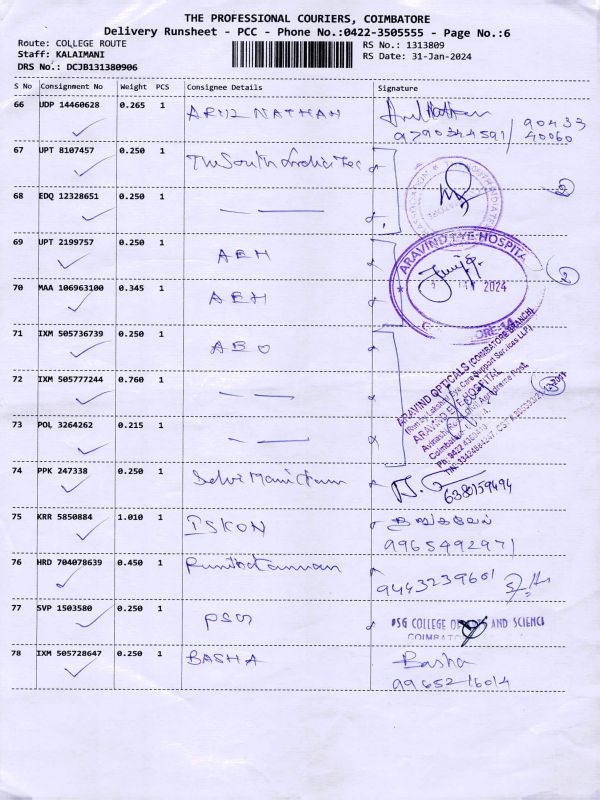 THE PROFESSIONAL COURIERS, COIMBATORE
Delivery Runsheet - PCC - Phone No.:0422-3505555 - Page No.:6
Route: COLLEGE ROUTE RS No.: 1313809
Staff: KALAIMANI RS Date: 31-Jan-2024
DRS No.: DCJB131380906
S No Consignment No Weight PCS Consignee Details Signature
66 UDP 14460628 0.265 1 NATHAN
90433
9790344591/ 40060
67 UPT 8107457 0.250 1 The South India Tec
2
68 EDQ 12328651 0.250 1 — —
69 UPT 2199757 0.250 1 AEH
ARAVIND EYE HOSPITA
2024
2
70 MAA 106963100 0.345 1 AEH
71 IXM 505736739 0.250 1 ABO
ARAVIND OPTICALS (COIMBATORE BRANCH)
ARAVIND EYE HOSPITAL
72 IXM 505777244 0.760 1 — —
73 POL 3264262 0.215 1 — —
74 PPK 247338 0.250 1 Selvi Manickam
6380159494
75 KRR 5850884 1.010 1 ISKON
9965492971
76 HRD 704078639 0.450 1
9443239601
77 SVP 1503580 0.250 1 PSG
PSG COLLEGE OF ARTS AND SCIENCE
COIMBATO
78 IXM 505728647 0.250 1 BASHA Basha
9965216014